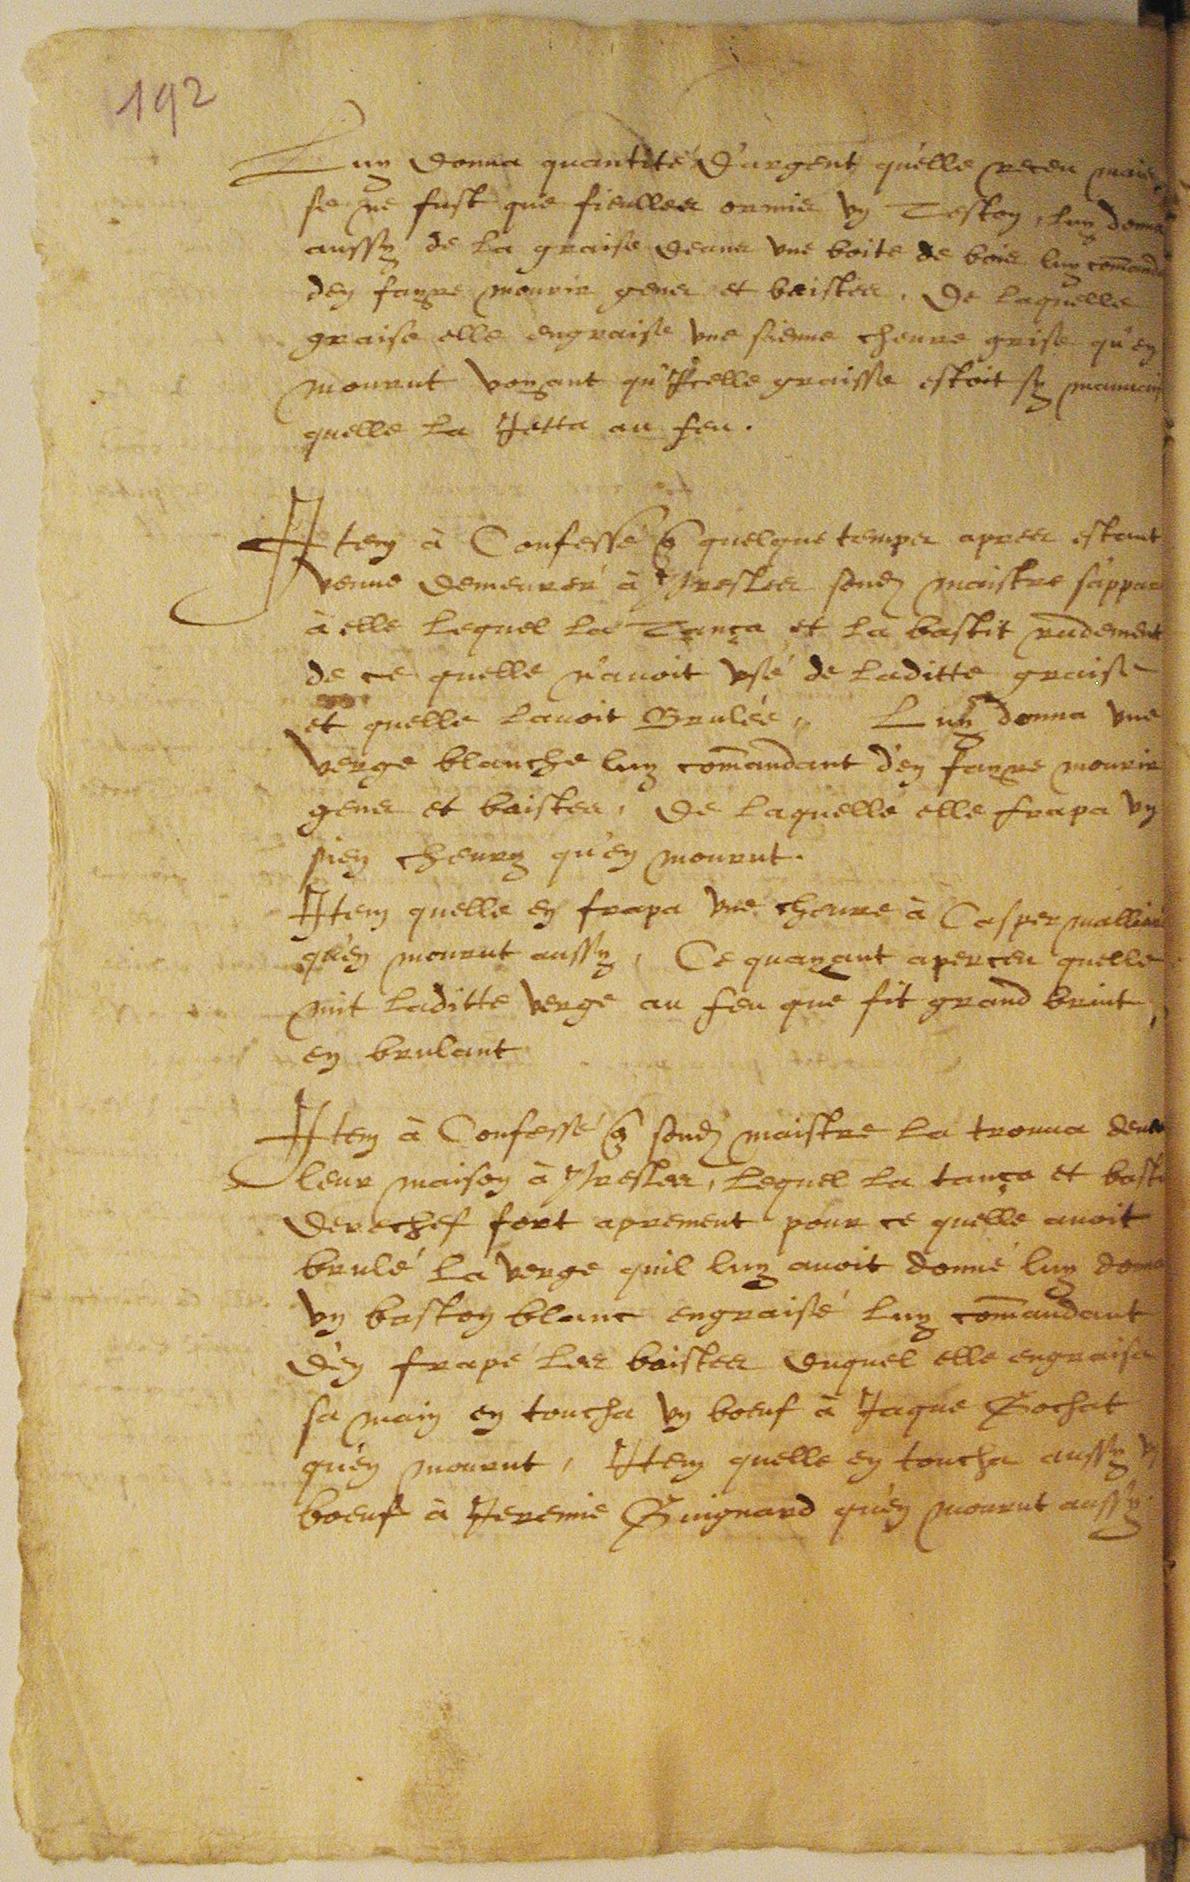 192
Luy donna quantité d'argent quelle receu mais
se ne fust que fieulles ormis vn Teston, luy donna
aussy de la graise deans vne boite de bois luy comanda
den fayre mourir gens et beistes. De laquelle
graise elle engraise vne sienne cheure grise qu'en
mourut voyant qu'icelle graisse estoit sy mauuais
quelle la Jetta au feu.
Item à Confessé quelque temps apres estant
venue demeurer à Presles sond maistre s'appar
à elle lequel la Tança et la bastit rudement
de ce quelle n'auoit vsé de laditte graise
et quelle lauoit Brulée, Luy donna vne
verge blanche luy comandant d'en fayre mourir
gens et beistes, de laquelle elle frapa vn
sien cheury qu'en mourut.
Item quelle en frapa vne cheure à Casper
qu'en mourut aussy, Ce quayant aperceu quelle
mit laditte verge au feu que fit grand bruit
en brulant
Item à Confessé sond maistre la trouua deuant
leur maison à Presles, lequel la tança et basti
derechef fort aprement pour ce quelle auoit
brulé la verge quil luy auoit donné luy donna
vn baston blanc engraisé luy comandant
d'en frapé les beistes duquel elle engraisa
sa main en toucha vn boeuf à Jaque Bochat
qu'en mourut, Item quelle en toucha aussy vn
boeuf à Jeremie Guignard qu'en mourut aussy.